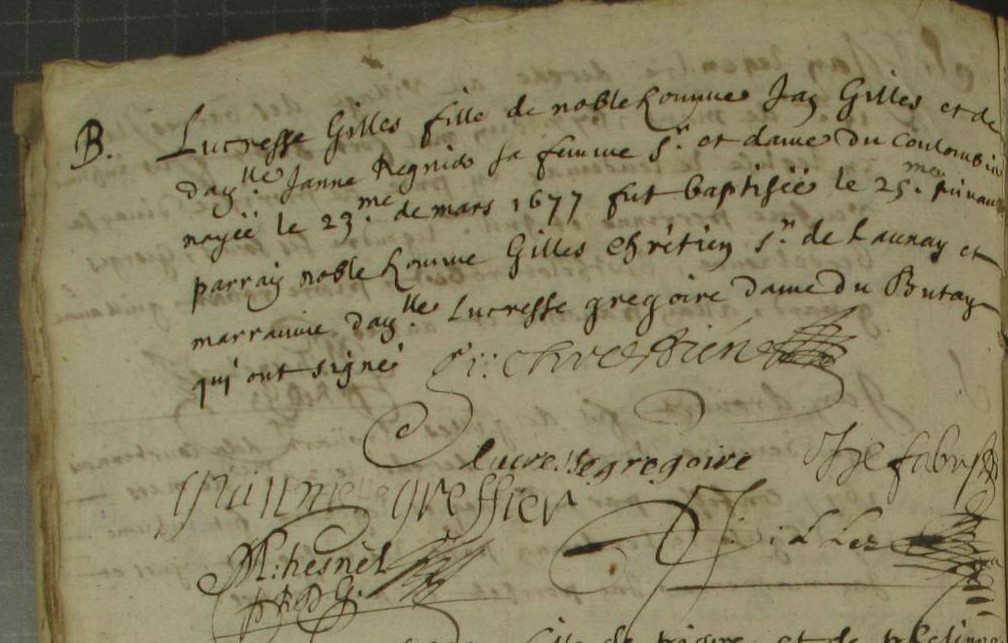 B. Lucresse Gilles fille de noble homme Jan Gilles et de
day.lle Janne Regnier sa femme S.r et dame du Coulombier
nayée le 23.me de mars 1677 fut baptisée le 25.me suivant
parrain noble homme Gilles Chrétien S.r de Launay et
marraine day.lle Lucresse gregoire dame du Butay
qui ont signé
Gi: Chrestien
lucresse gregoire
greffier
M: hesnel
J: Gilles